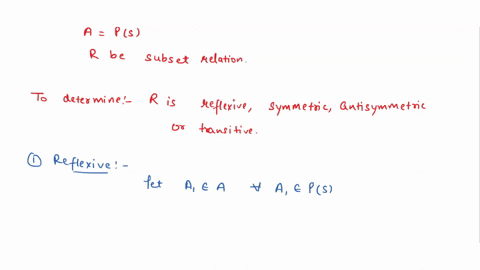 A = P(S)
R be subset relation.
To determine:- R is reflexive, symmetric, antisymmetric
or transitive.
① Reflexive:-
let A₁ ∈ A ∀ A₁ ∈ P(S)